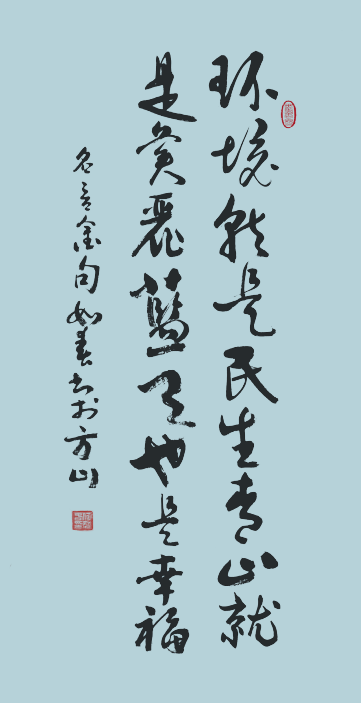 环境就是民生青山就
是美麗藍天也是幸福
名言金句如春书於方山